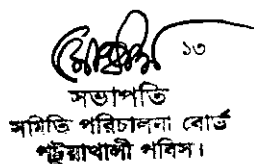 ১৩
সভাপতি
সমিতি পরিচালনা বোর্ড
পটুয়াখালী পবিস।